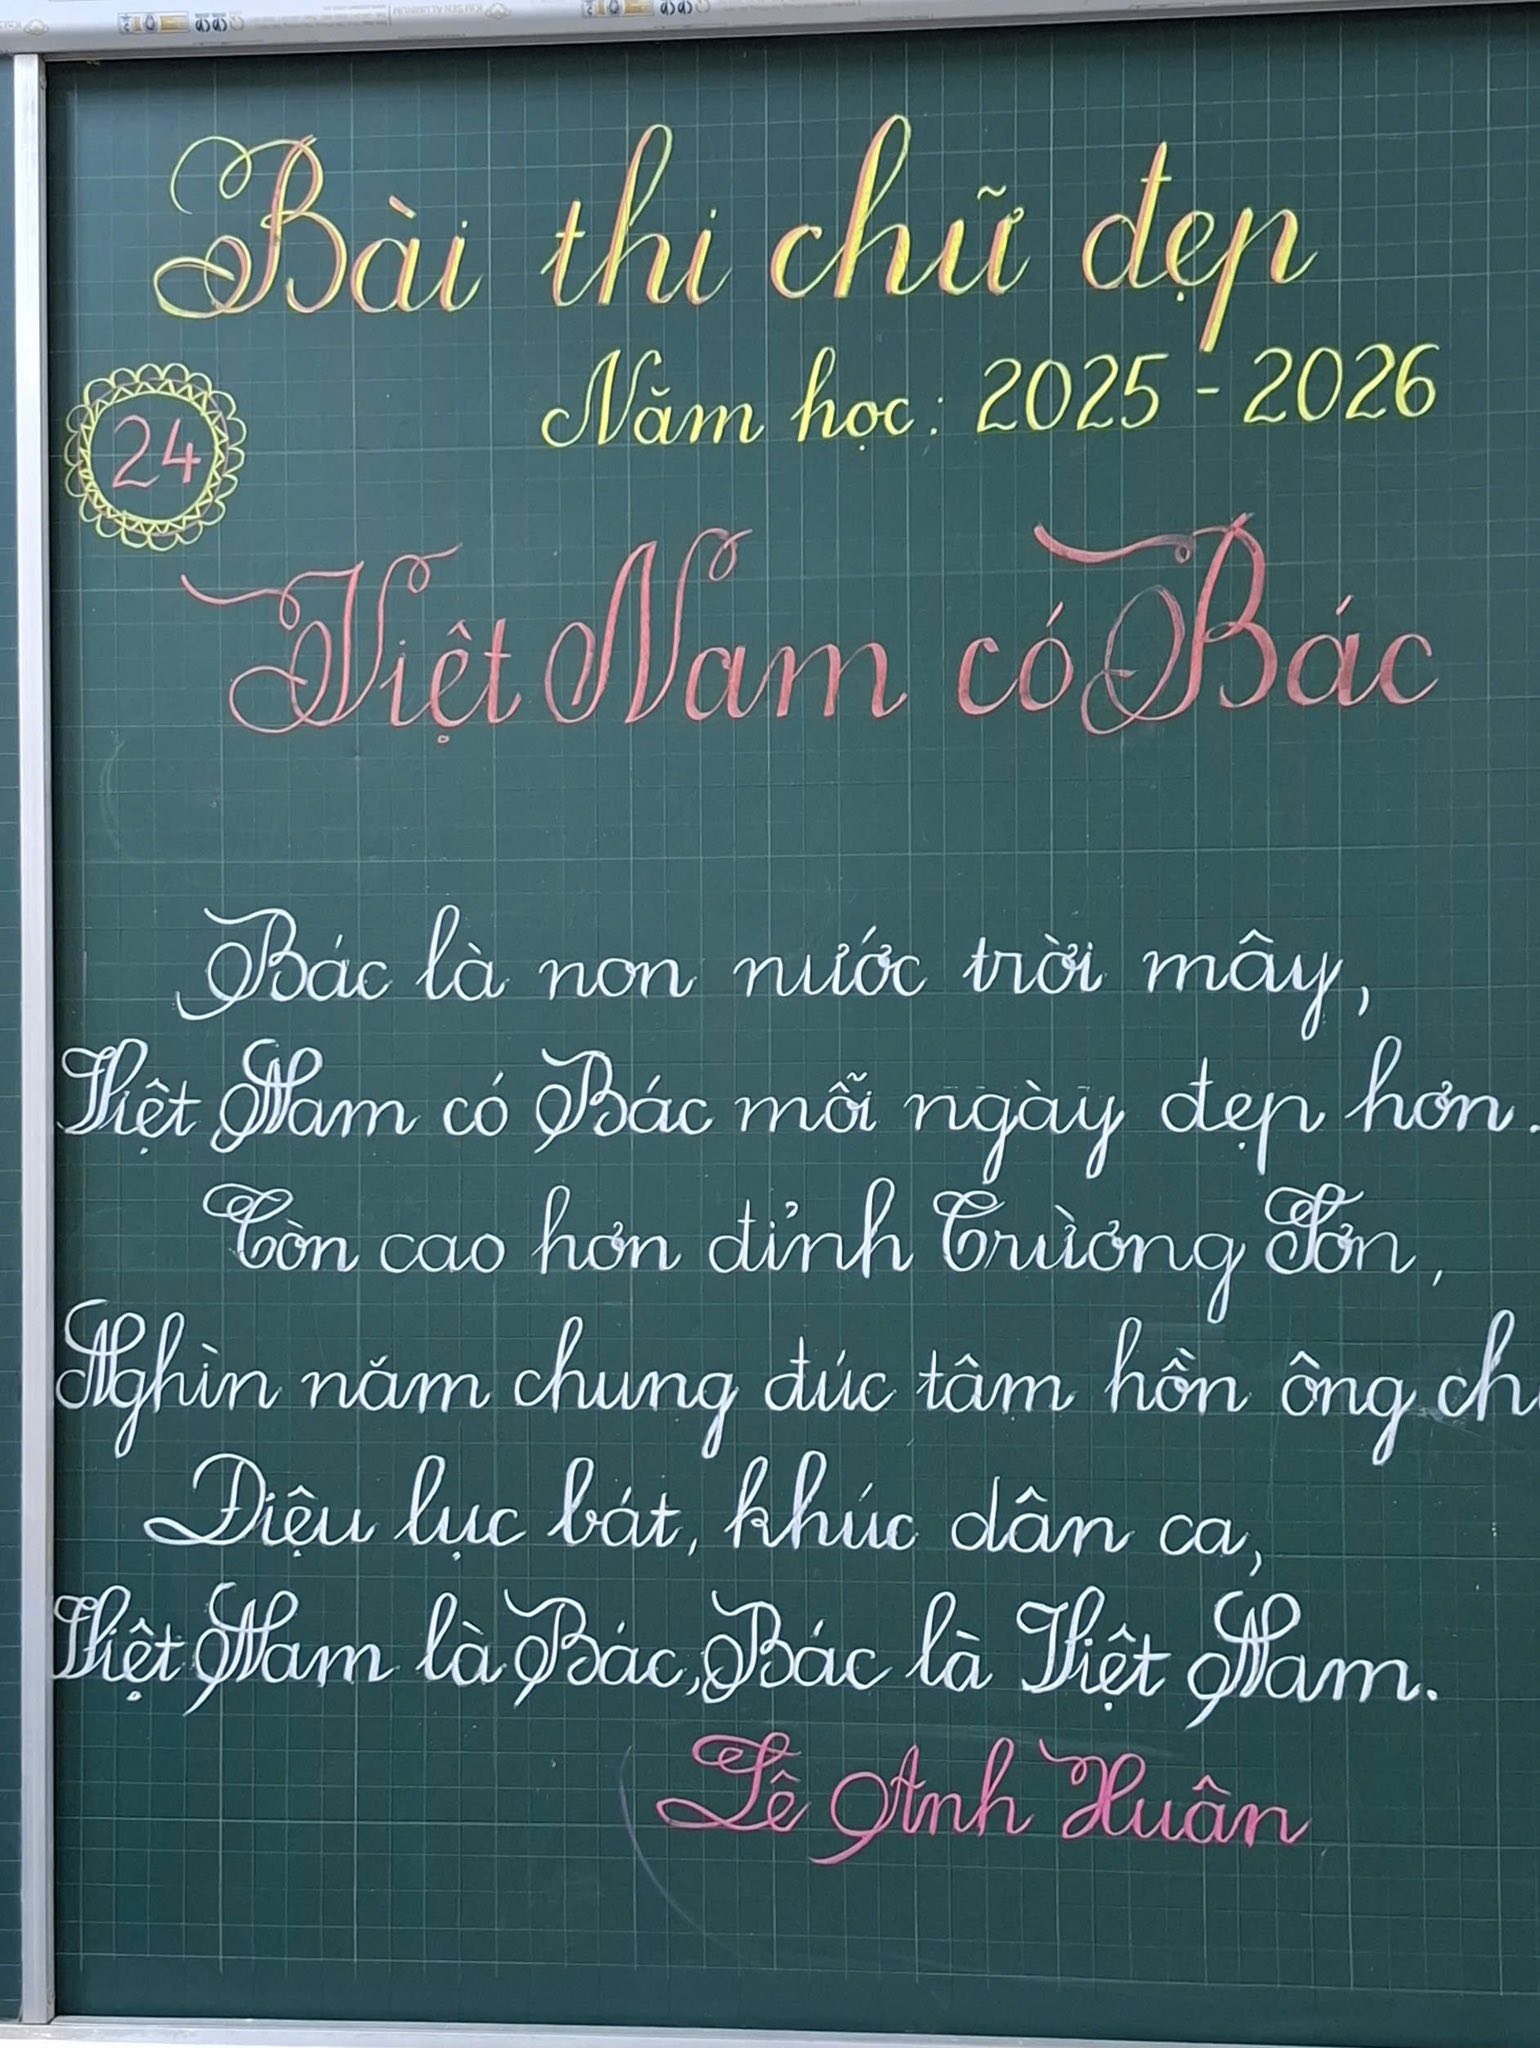 Bài thi chữ đẹp
Năm học: 2025 - 2026
24
Việt Nam có Bác
Bác là non nước trời mây,
Việt Nam có Bác mỗi ngày đẹp hơn.
Còn cao hơn đỉnh Trường Sơn,
Nghìn năm chung đúc tâm hồn ông ch
Điệu lục bát, khúc dân ca,
Việt Nam là Bác, Bác là Việt Nam.
Lê Anh Xuân